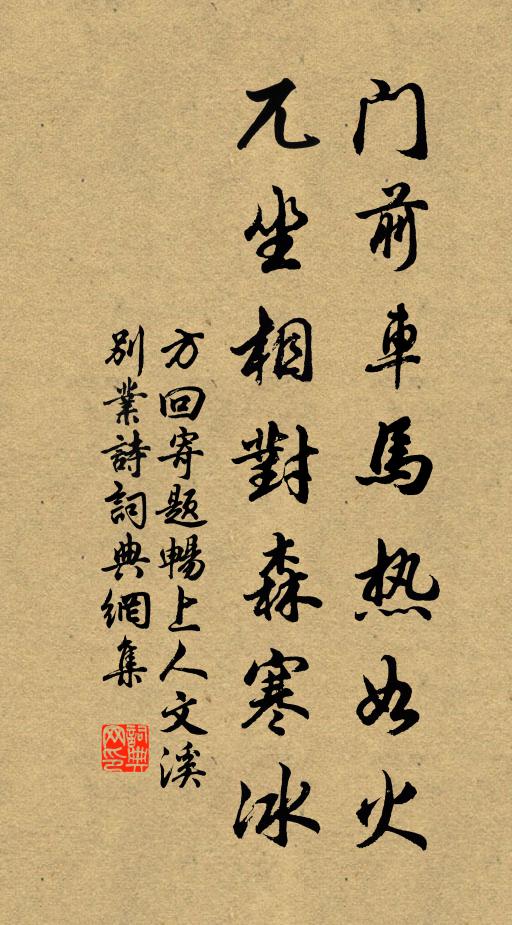 門前車馬热如火
兀坐相對森寒冰
方回寄题暢上人文溪
别業詩詞典網集
詞典网印